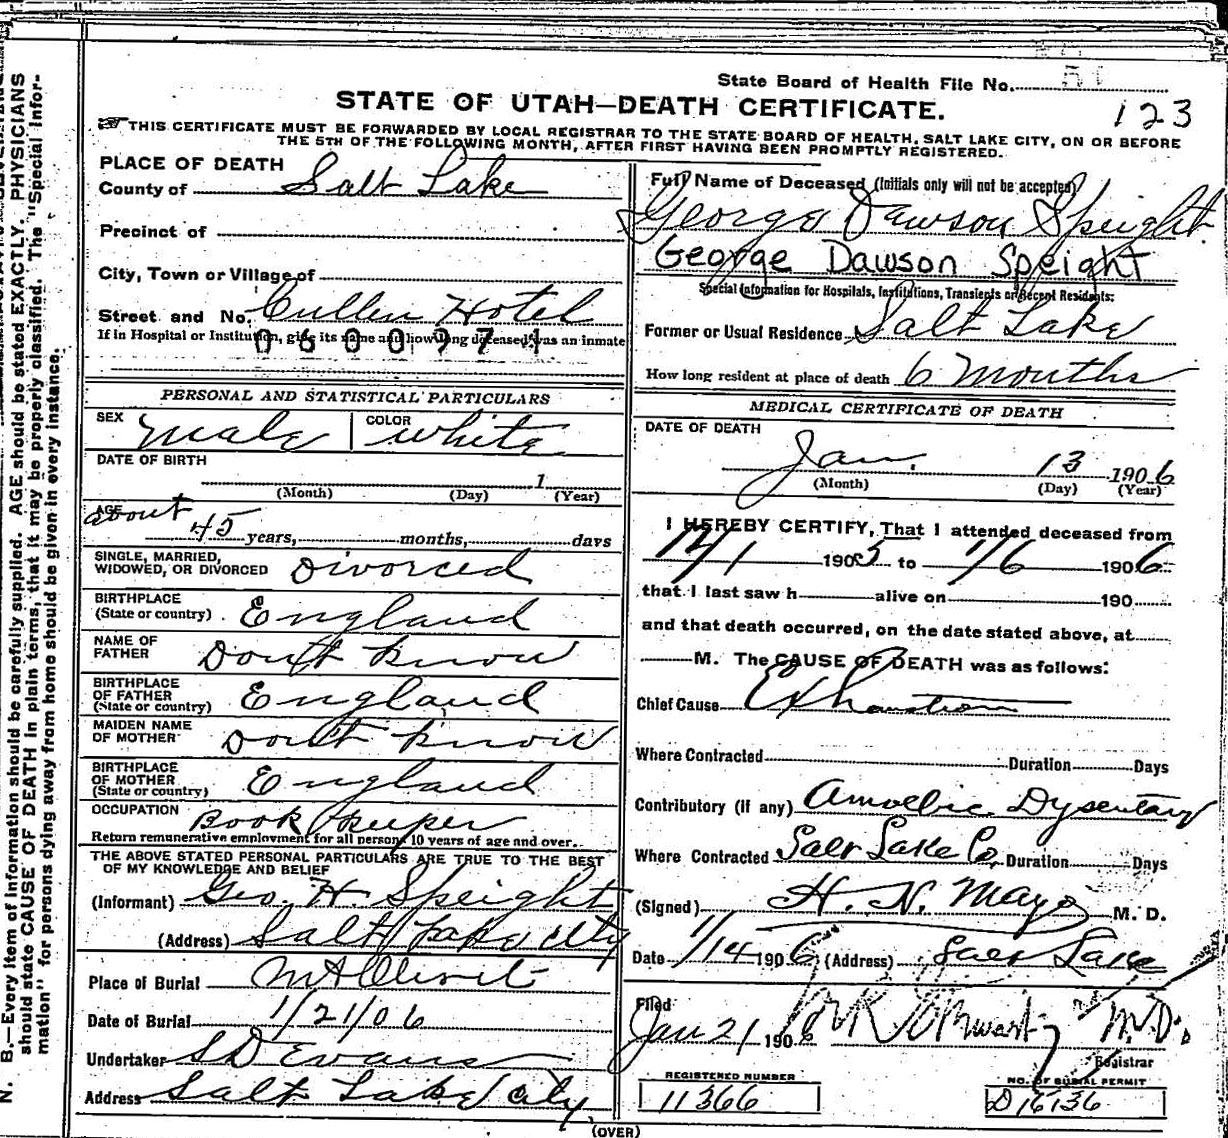 State Board of Health File No. 51
STATE OF UTAH—DEATH CERTIFICATE.
123
THIS CERTIFICATE MUST BE FORWARDED BY LOCAL REGISTRAR TO THE STATE BOARD OF HEALTH, SALT LAKE CITY, ON OR BEFORE
THE 5TH OF THE FOLLOWING MONTH, AFTER FIRST HAVING BEEN PROMPTLY REGISTERED.
PLACE OF DEATH
County of Salt Lake
Precinct of
City, Town or Village of
Street and No. Cullen Hotel
If in Hospital or Institution, give its name and how long deceased was an inmate
0600971
PERSONAL AND STATISTICAL PARTICULARS
SEX Male COLOR White
DATE OF BIRTH
1
(Month) (Day) (Year)
AGE about 45 years, months, days
SINGLE, MARRIED,
WIDOWED, OR DIVORCED Divorced
BIRTHPLACE
(State or country) England
NAME OF
FATHER Don't know
BIRTHPLACE
OF FATHER
(State or country) England
MAIDEN NAME
OF MOTHER Don't know
BIRTHPLACE
OF MOTHER
(State or country) England
OCCUPATION Book keeper
Return remunerative employment for all persons 10 years of age and over.
THE ABOVE STATED PERSONAL PARTICULARS ARE TRUE TO THE BEST
OF MY KNOWLEDGE AND BELIEF
(Informant) Geo. H. Speight
(Address) Salt Lake City
Place of Burial Mt Olivet
Date of Burial 1/21/06
Undertaker S D Evans
Address Salt Lake City
Full Name of Deceased (Initials only will not be accepted)
George Dawson Speight
George Dawson Speight
Special Information for Hospitals, Institutions, Transients or Recent Residents:
Former or Usual Residence Salt Lake
How long resident at place of death 6 Months
MEDICAL CERTIFICATE OF DEATH
DATE OF DEATH
Jan. 13 1906
(Month) (Day) (Year)
I HEREBY CERTIFY, That I attended deceased from
12/1 1905 to 1/6 1906
that I last saw h alive on 190
and that death occurred, on the date stated above, at
M. The CAUSE OF DEATH was as follows:
Chief Cause Exhaustion
Where Contracted Duration Days
Contributory (if any) Amoebic Dysentary
Where Contracted Salt Lake Co. Duration Days
(Signed) H. N. Mayo M. D.
Date 1/14 1906 (Address) Salt Lake
Filed
Jan 21 1906 M.D.
Registrar
REGISTERED NUMBER
11366
NO. OF BURIAL PERMIT
D16136
(OVER)
N. B.—Every item of information should be carefully supplied. AGE should be stated EXACTLY. PHYSICIANS
should state CAUSE OF DEATH in plain terms, that it may be properly classified. The "Special Infor-
mation" for persons dying away from home should be given in every instance.